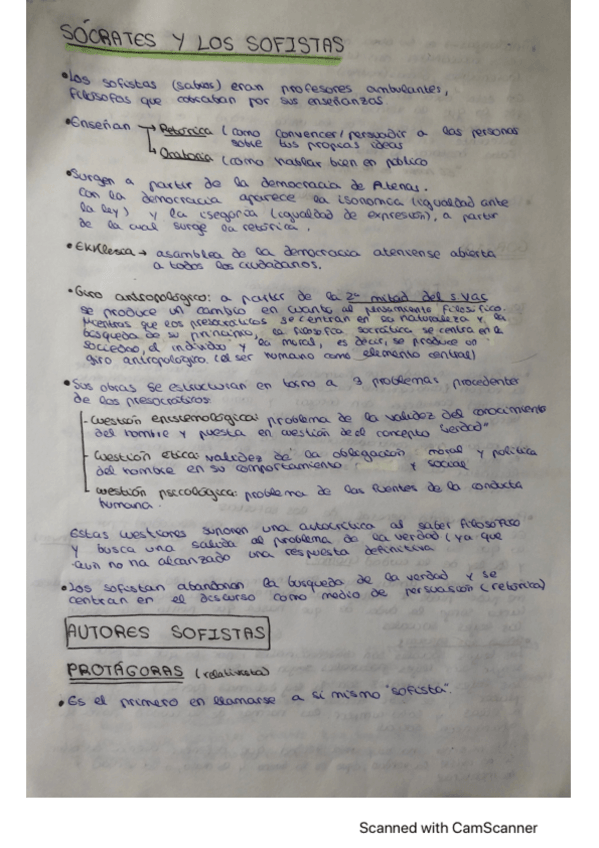 SÓCRATES Y LOS SOFISTAS
• Los sofistas (sabios) eran profesores ambulantes,
filósofos que cobraban por sus enseñanzas
• Enseñan → Retórica (como convencer/persuadir a las personas
sobre tus propias ideas
↳ Oratoria (como hablar bien en público
• Surgen a partir de la democracia de Atenas.
con la democracia aparece la isonomia (igualdad ante
la ley) y la isegoria (igualdad de expresión), a partir
de la cual surge la retórica.
• Ekklesia → asamblea de la democracia ateniense abierta
a todos los ciudadanos.
• Giro antropológico: a partir de la 2ª mitad del s. V aC
se produce un cambio en cuanto al pensamiento filosófico.
Mientras que los presocráticos se centran en la naturaleza y la
búsqueda de su principio, la filosofía socrática se centra en la
sociedad, el individuo y la moral, es decir, se produce un
giro antropológico. (el ser humano como elemento central)
• Sus obras se estructuran en torno a 3 problemas, procedentes
de los presocráticos:
- Cuestión epistemológica: problema de la validez del conocimiento
del hombre y puesta en cuestión del concepto "verdad"
- Cuestión ética: validez de la obligación moral y política
del hombre en su comportamiento y social
- Cuestión psicológica: problema de las fuentes de la conducta
humana.
Estas cuestiones suponen una autocrítica al saber filosófico
y busca una salida al problema de la verdad (ya que
aún no ha alcanzado una respuesta definitiva
• Los sofistan abandonan la búsqueda de la verdad y se
centran en el discurso como medio de persuasión (retórica)
AUTORES SOFISTAS
PROTÁGORAS (relativista)
• Es el primero en llamarse a sí mismo "sofista".
Scanned with CamScanner